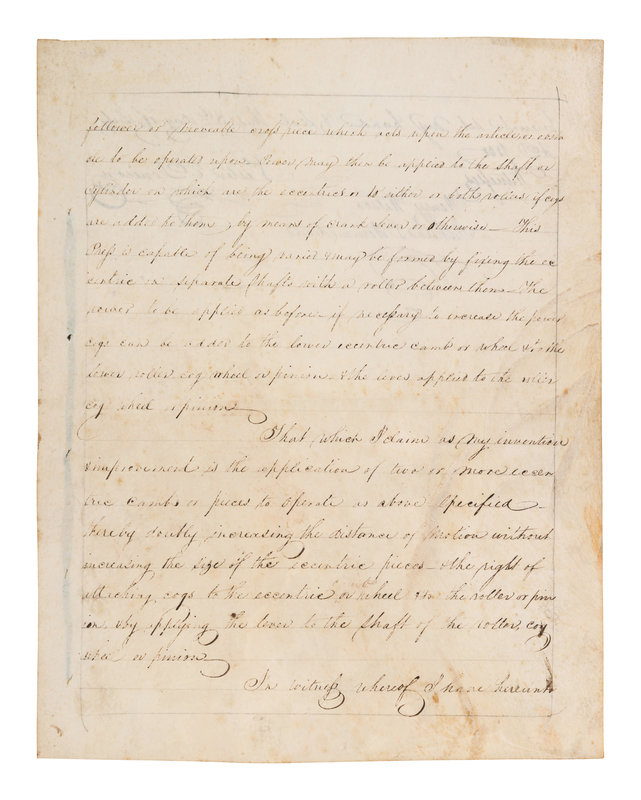 follower or moveable cross piece which acts upon the article or
to be operated upon Power may then be applied to the shaft or
cylinder on which are the eccentrics or to either or both rollers if cogs
are added to them, by means of crank lever or otherwise — This
Press is capable of being varied & may be formed by fixing the ec
centric on separate shafts with a roller between them — The
power to be applied as before — if necessary to increase the power
cogs can be added to the lower eccentric camb or wheel & to the
lower roller cog wheel or pinion — & the lever applied to the
cog wheel or pinion
That which I claim as my invention
& improvement is the application of two or more eccen
tric cambs or pieces to operate as above specified —
thereby doubly increasing the distance of motion without
increasing the size of the eccentric pieces — & the right of
attaching cogs to the eccentric or wheel & to the roller or pin
ion & by applying the lever to the shaft of the roller, cog
wheel or pinion
In witness whereof I have hereunto